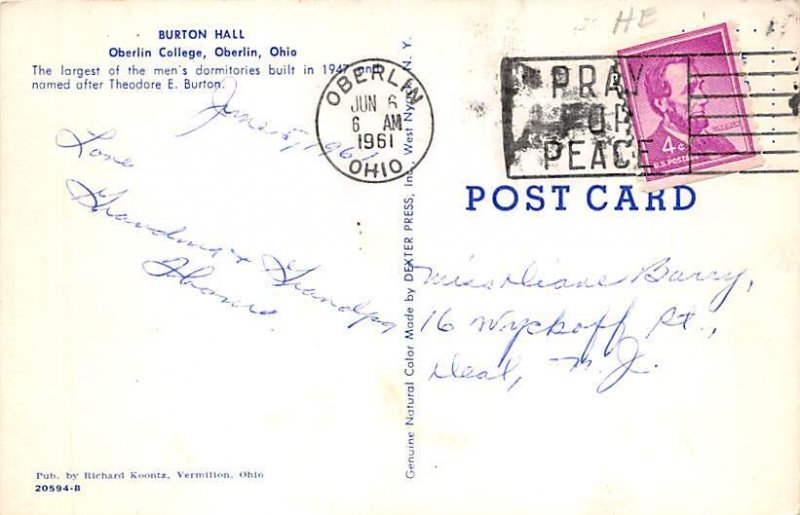 BURTON HALL
Oberlin College, Oberlin, Ohio
The largest of the men's dormitories built in 1947 and
named after Theodore E. Burton.
June 5, 1961
Love
Grandma & Grandpa
Pub. by Richard Koontz, Vermilion, Ohio
20594-B
Genuine Natural Color Made by DEXTER PRESS, Inc. West Nyack, N. Y.
HE
OBERLIN
JUN 6
6 AM
1961
OHIO
PRAY
FOR
PEACE
4¢
U.S. POSTAGE
POST CARD
Miss Diane Barry,
16 Wyckoff St.,
Deal, N.J.